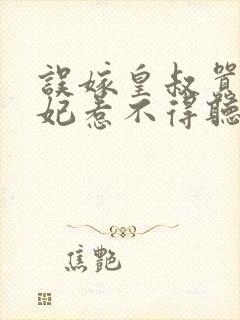 誤嫁皇叔
妃惹不得聽
焦艷